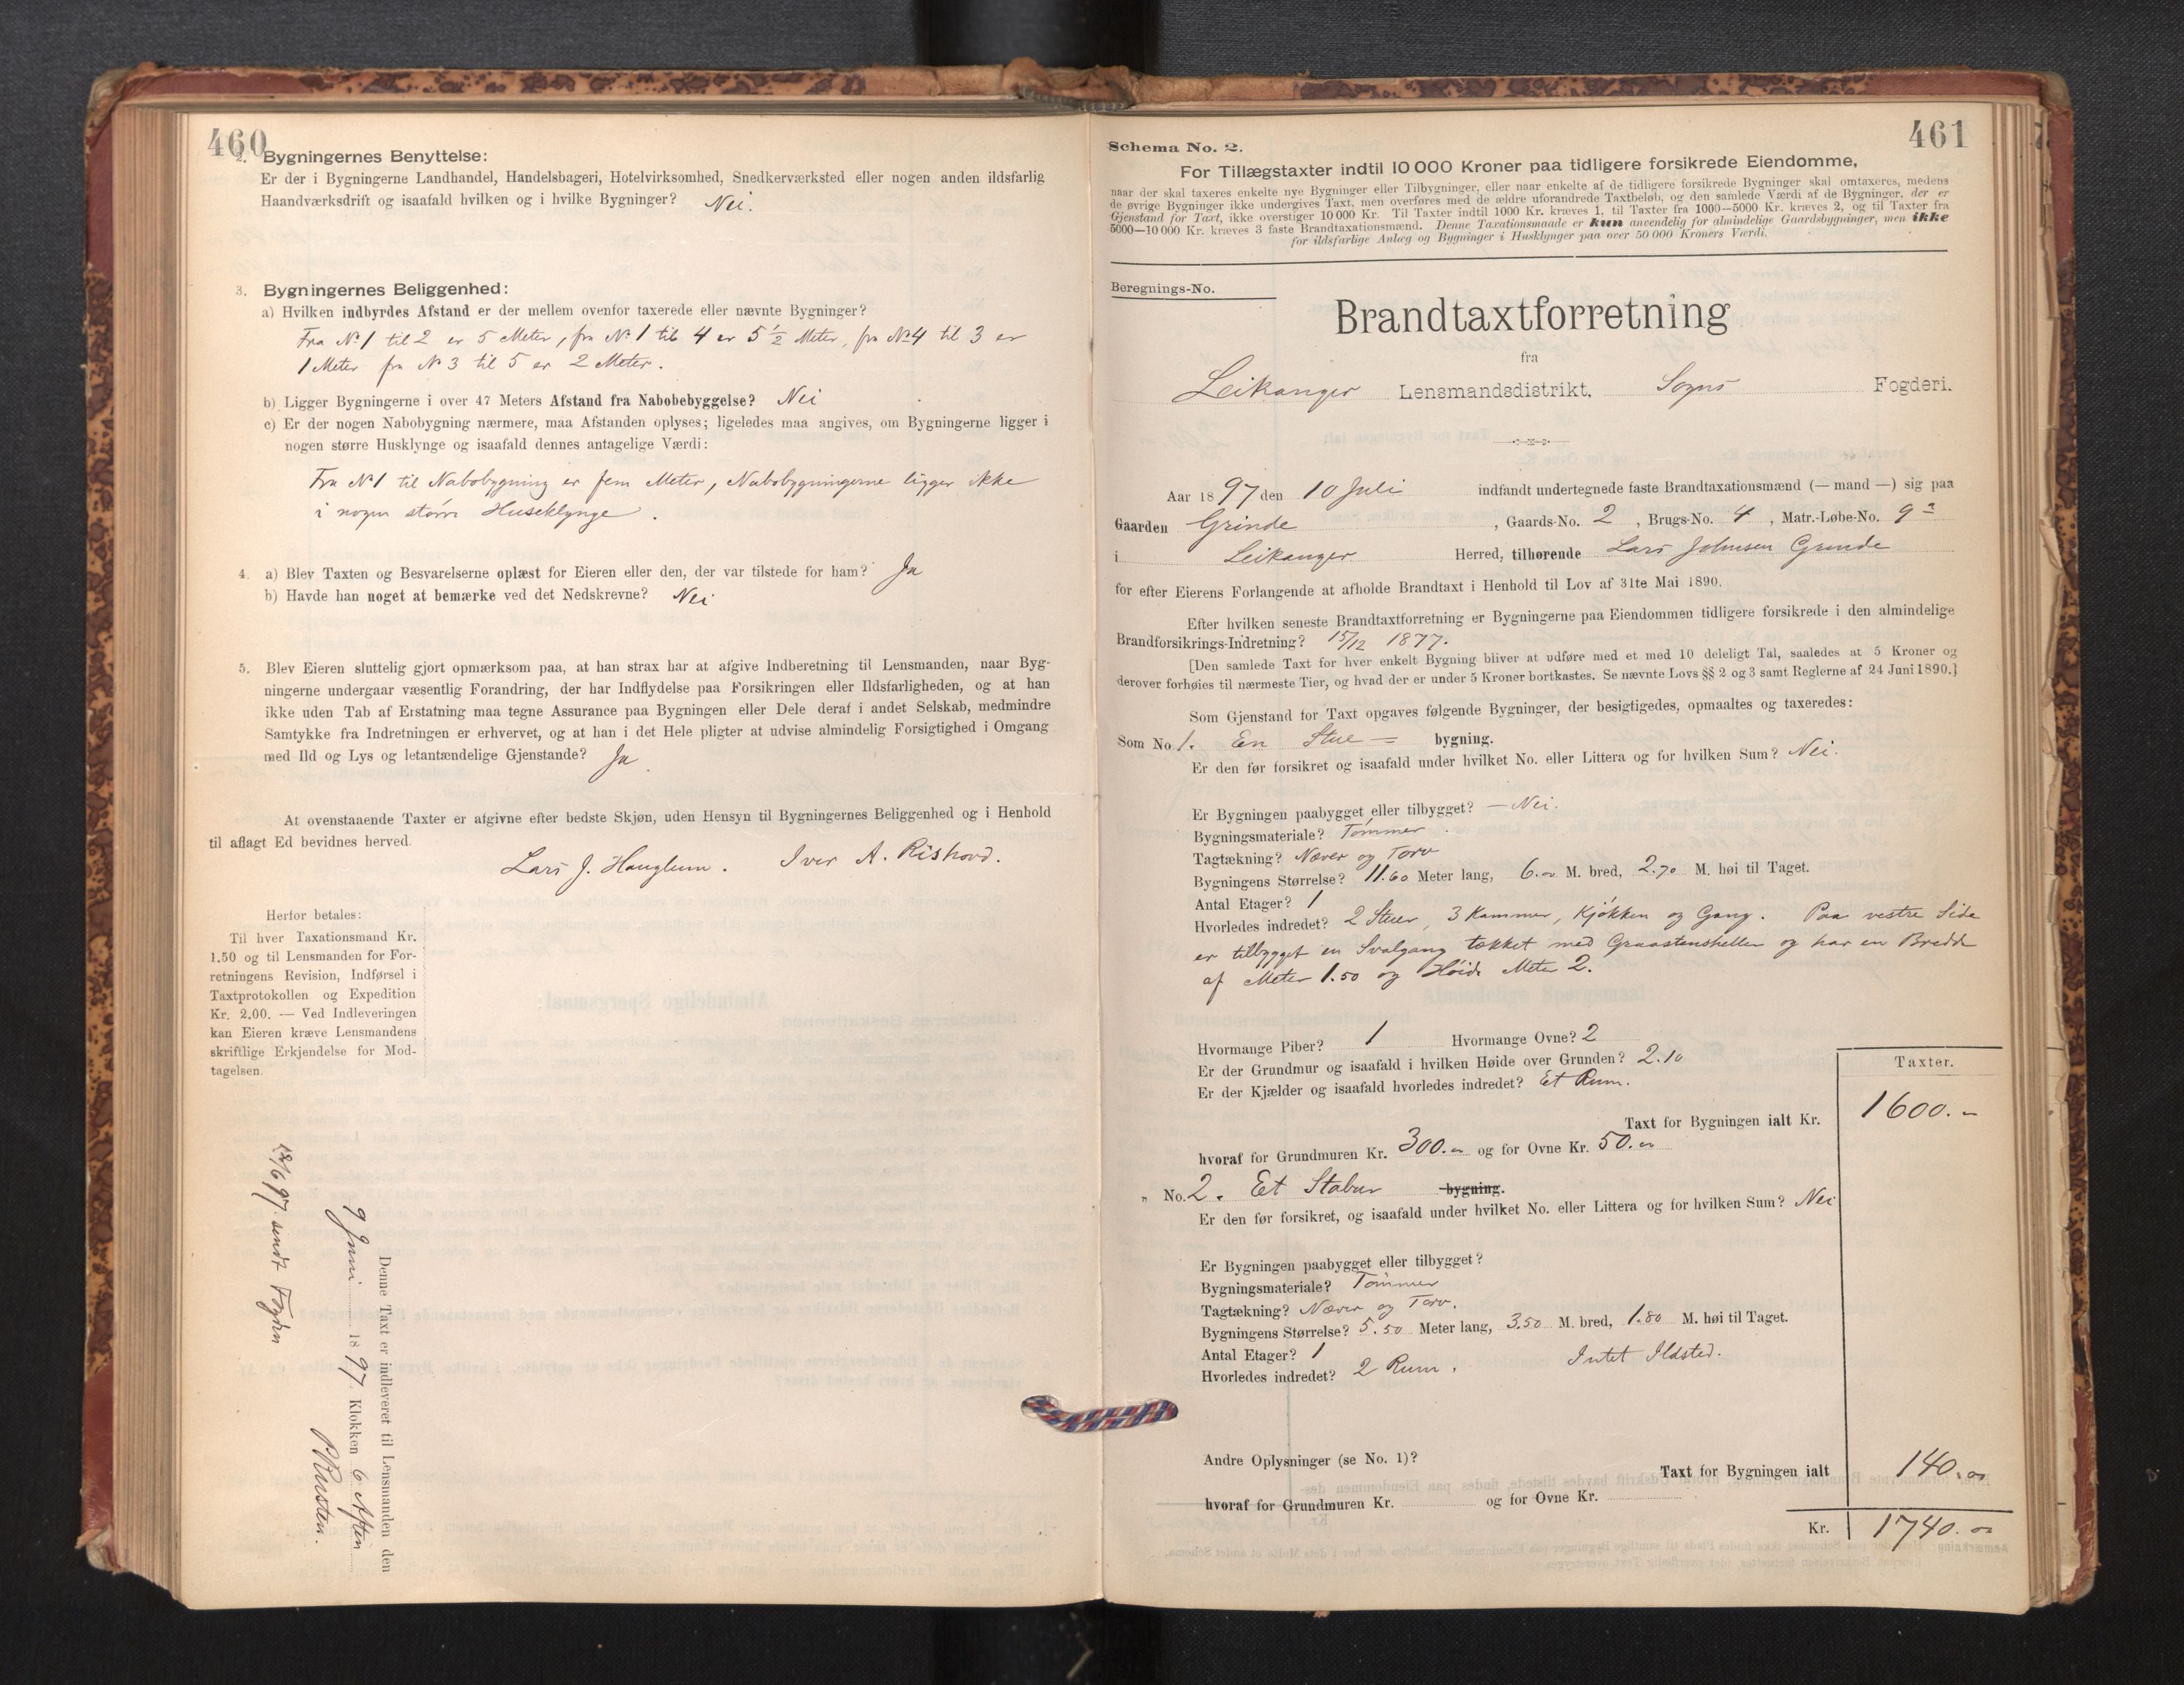 460
2. Bygningernes Benyttelse:
Er der i Bygningerne Landhandel, Handelsbageri, Hotelvirksomhed, Snedkerværksted eller nogen anden ildsfarlig
Haandværksdrift og isaafald hvilken og i hvilke Bygninger? Nei.
3. Bygningernes Beliggenhed:
a) Hvilken indbyrdes Afstand er der mellem ovenfor taxerede eller nævnte Bygninger?
Fra No 1 til 2 er 5 Meter, fra No 1 til 4 er 5 1/2 Meter, fra No 4 til 3 er
1 Meter fra No 3 til 5 er 2 Meter.
b) Ligger Bygningerne i over 47 Meters Afstand fra Nabobebyggelse? Nei
c) Er der nogen Nabobygning nærmere, maa Afstanden oplyses; ligeledes maa angives, om Bygningerne ligger i
nogen større Husklynge og isaafald dennes antagelige Værdi:
Fra No 1 til Nabobygning er fem Meter, Nabobygningerne ligger ikke
i nogen større Huseklynge.
4. a) Blev Taxten og Besvarelserne oplæst for Eieren eller den, der var tilstede for ham? Ja
b) Havde han noget at bemærke ved det Nedskrevne? Nei
5. Blev Eieren sluttelig gjort opmærksom paa, at han strax har at afgive Indberetning til Lensmanden, naar Byg-
ningerne undergaar væsentlig Forandring, der har Indflydelse paa Forsikringen eller Ildsfarligheden, og at han
ikke uden Tab af Erstatning maa tegne Assurance paa Bygningen eller Dele deraf i andet Selskab, medmindre
Samtykke fra Indretningen er erhvervet, og at han i det Hele pligter at udvise almindelig Forsigtighed i Omgang
med Ild og Lys og letantændelige Gjenstande? Ja
At ovenstaaende Taxter er afgivne efter bedste Skjøn, uden Hensyn til Bygningernes Beliggenhed og i Henhold
til aflagt Ed bevidnes herved.
Lars J. Hauglum. Iver A. Rishovd.
Herfor betales:
Til hver Taxationsmand Kr.
1.50 og til Lensmanden for For-
retningens Revision, Indførsel i
Taxtprotokollen og Expedition
Kr. 2.00. — Ved Indleveringen
kan Eieren kræve Lensmandens
skriftlige Erkjendelse for Mod-
tagelsen.
Denne Taxt er indleveret til Lensmanden den
9 Juni 1897. Klokken 6 Aften
12/6 97. sendt Fogden
461
Schema No. 2.
For Tillægstaxter indtil 10 000 Kroner paa tidligere forsikrede Eiendomme,
naar der skal taxeres enkelte nye Bygninger eller Tilbygninger, eller naar enkelte af de tidligere forsikrede Bygninger skal omtaxeres, medens
de øvrige Bygninger ikke undergives Taxt, men overføres med de ældre uforandrede Taxtbeløb, og den samlede Værdi af de Bygninger, der er
Gjenstand for Taxt, ikke overstiger 10 000 Kr. Til Taxter indtil 1000 Kr. kræves 1, til Taxter fra 1000—5000 Kr. kræves 2, og til Taxter fra
5000—10 000 Kr. kræves 3 faste Brandtaxationsmænd. Denne Taxationsmaade er kun anvendelig for almindelige Gaardsbygninger, men ikke
for ildsfarlige Anlæg og Bygninger i Husklynger paa over 50 000 Kroners Værdi.
Beregnings-No.
Brandtaxtforretning
fra
Leikanger Lensmandsdistrikt, Sogns Fogderi.
Aar 1897 den 10 Juli indfandt undertegnede faste Brandtaxationsmænd (— mand —) sig paa
Gaarden Grinde, Gaards-No. 2, Brugs-No. 4, Matr.-Løbe-No. 9a
i Leikanger Herred, tilhørende Lars Johnsen Grinde
for efter Eierens Forlangende at afholde Brandtaxt i Henhold til Lov af 31te Mai 1890.
Efter hvilken seneste Brandtaxtforretning er Bygningerne paa Eiendommen tidligere forsikrede i den almindelige
Brandforsikrings-Indretning? 15/12 1877.
[Den samlede Taxt for hver enkelt Bygning bliver at udføre med et med 10 deleligt Tal, saaledes at 5 Kroner og
derover forhøies til nærmeste Tier, og hvad der er under 5 Kroner bortkastes. Se nævnte Lovs §§ 2 og 3 samt Reglerne af 24 Juni 1890.]
Som Gjenstand for Taxt opgaves følgende Bygninger, der besigtigedes, opmaaltes og taxeredes:
Som No. 1. En Stue= bygning.
Er den før forsikret og isaafald under hvilket No. eller Littera og for hvilken Sum? Nei.
Er Bygningen paabygget eller tilbygget? — Nei.
Bygningsmateriale? Tømmer
Tagtækning? Næver og Torv
Bygningens Størrelse? 11.60 Meter lang, 6.00 M. bred, 2.70 M. høi til Taget.
Antal Etager? 1
Hvorledes indredet? 2 Stuer, 3 Kammer, Kjøkken og Gang. Paa vestre Side
er tilbygget en Svalgang tækket med Graastensheller og har en Bredde
af Meter 1.50 og Høide Meter 2.
Hvormange Piber? 1 Hvormange Ovne? 2
Er der Grundmur og isaafald i hvilken Høide over Grunden? 2.10
Er der Kjælder og isaafald hvorledes indredet? Et Rum.
Taxter.
Taxt for Bygningen ialt Kr. 1600.-
hvoraf for Grundmuren Kr. 300.00 og for Ovne Kr. 50.00
" No. 2. Et Stabur bygning.
Er den før forsikret, og isaafald under hvilket No. eller Littera og for hvilken Sum? Nei
Er Bygningen paabygget eller tilbygget?
Bygningsmateriale? Tømmer
Tagtækning? Næver og Torv.
Bygningens Størrelse? 5.50 Meter lang, 3.50 M. bred, 1.80 M. høi til Taget.
Antal Etager? 1
Hvorledes indredet? 2 Rum. Intet Ildsted.
Andre Oplysninger (se No. 1)?
Taxt for Bygningen ialt 140.00
hvoraf for Grundmuren Kr. og for Ovne Kr.
Kr. 1740.00